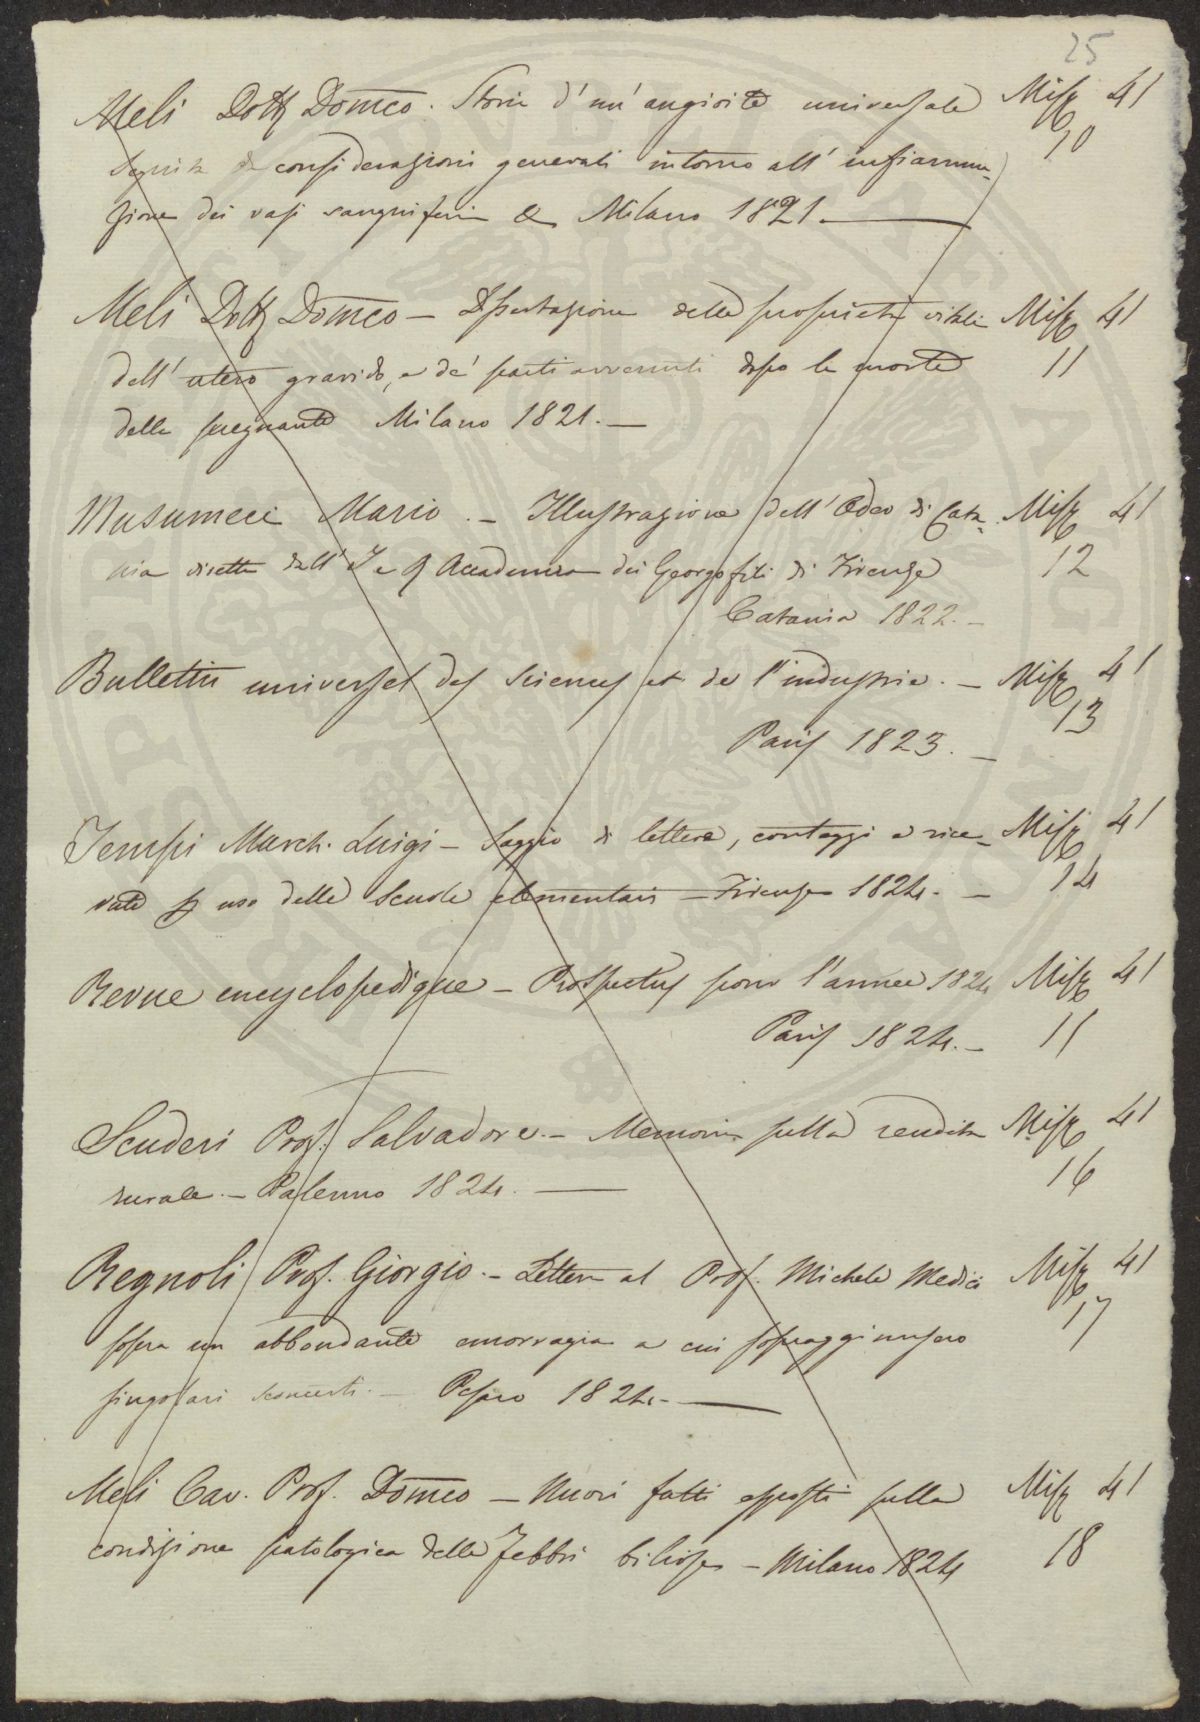 25
Meli Dott Domco. Storia d'un' angioite universale Misc 41
seguita da considerazioni generali intorno all' infiamma= 10
zione dei vasi sanguiferi & Milano 1821.
Meli Dott Domco – Dissertazione delle proprietà vitali Misc 41
dell' utero gravido, e de' parti avvenuti dopo la morte 11
della pregnante Milano 1821. –
Musumeci Mario. – Illustrazione dell' Odeo di Cata= Misc 41
nia diretta dall' I e R Accademia dei Georgofili di Firenze 12
Catania 1822. –
Bulletin universel des Sciences et de l'industrie. – Misc 41
13
Paris 1823. –
Tempi March. Luigi – Saggio di lettere, conteggi e rice= Misc 41
vute p uso delle Scuole elementari – Firenze 1824. – 14
Revue encyclopedique – Prospectus pour l'annee 1824 Misc 41
Paris 1824. – 15
Scuderi Prof. Salvadore. – Memoria sulla rendita Misc 41
rurale. – Palermo 1824. 16
Regnoli Prof. Giorgio. – Lettera al Prof. Michele Medici Misc 41
sopra un abbondante emorragia a cui sopraggiunsero 17
singolari sconcerti. – Pesaro 1824. –
Meli Cav. Prof. Domco – Nuovi fatti esposti sulla Misc 41
condizione patologica delle febbri biliose – Milano 1824 18